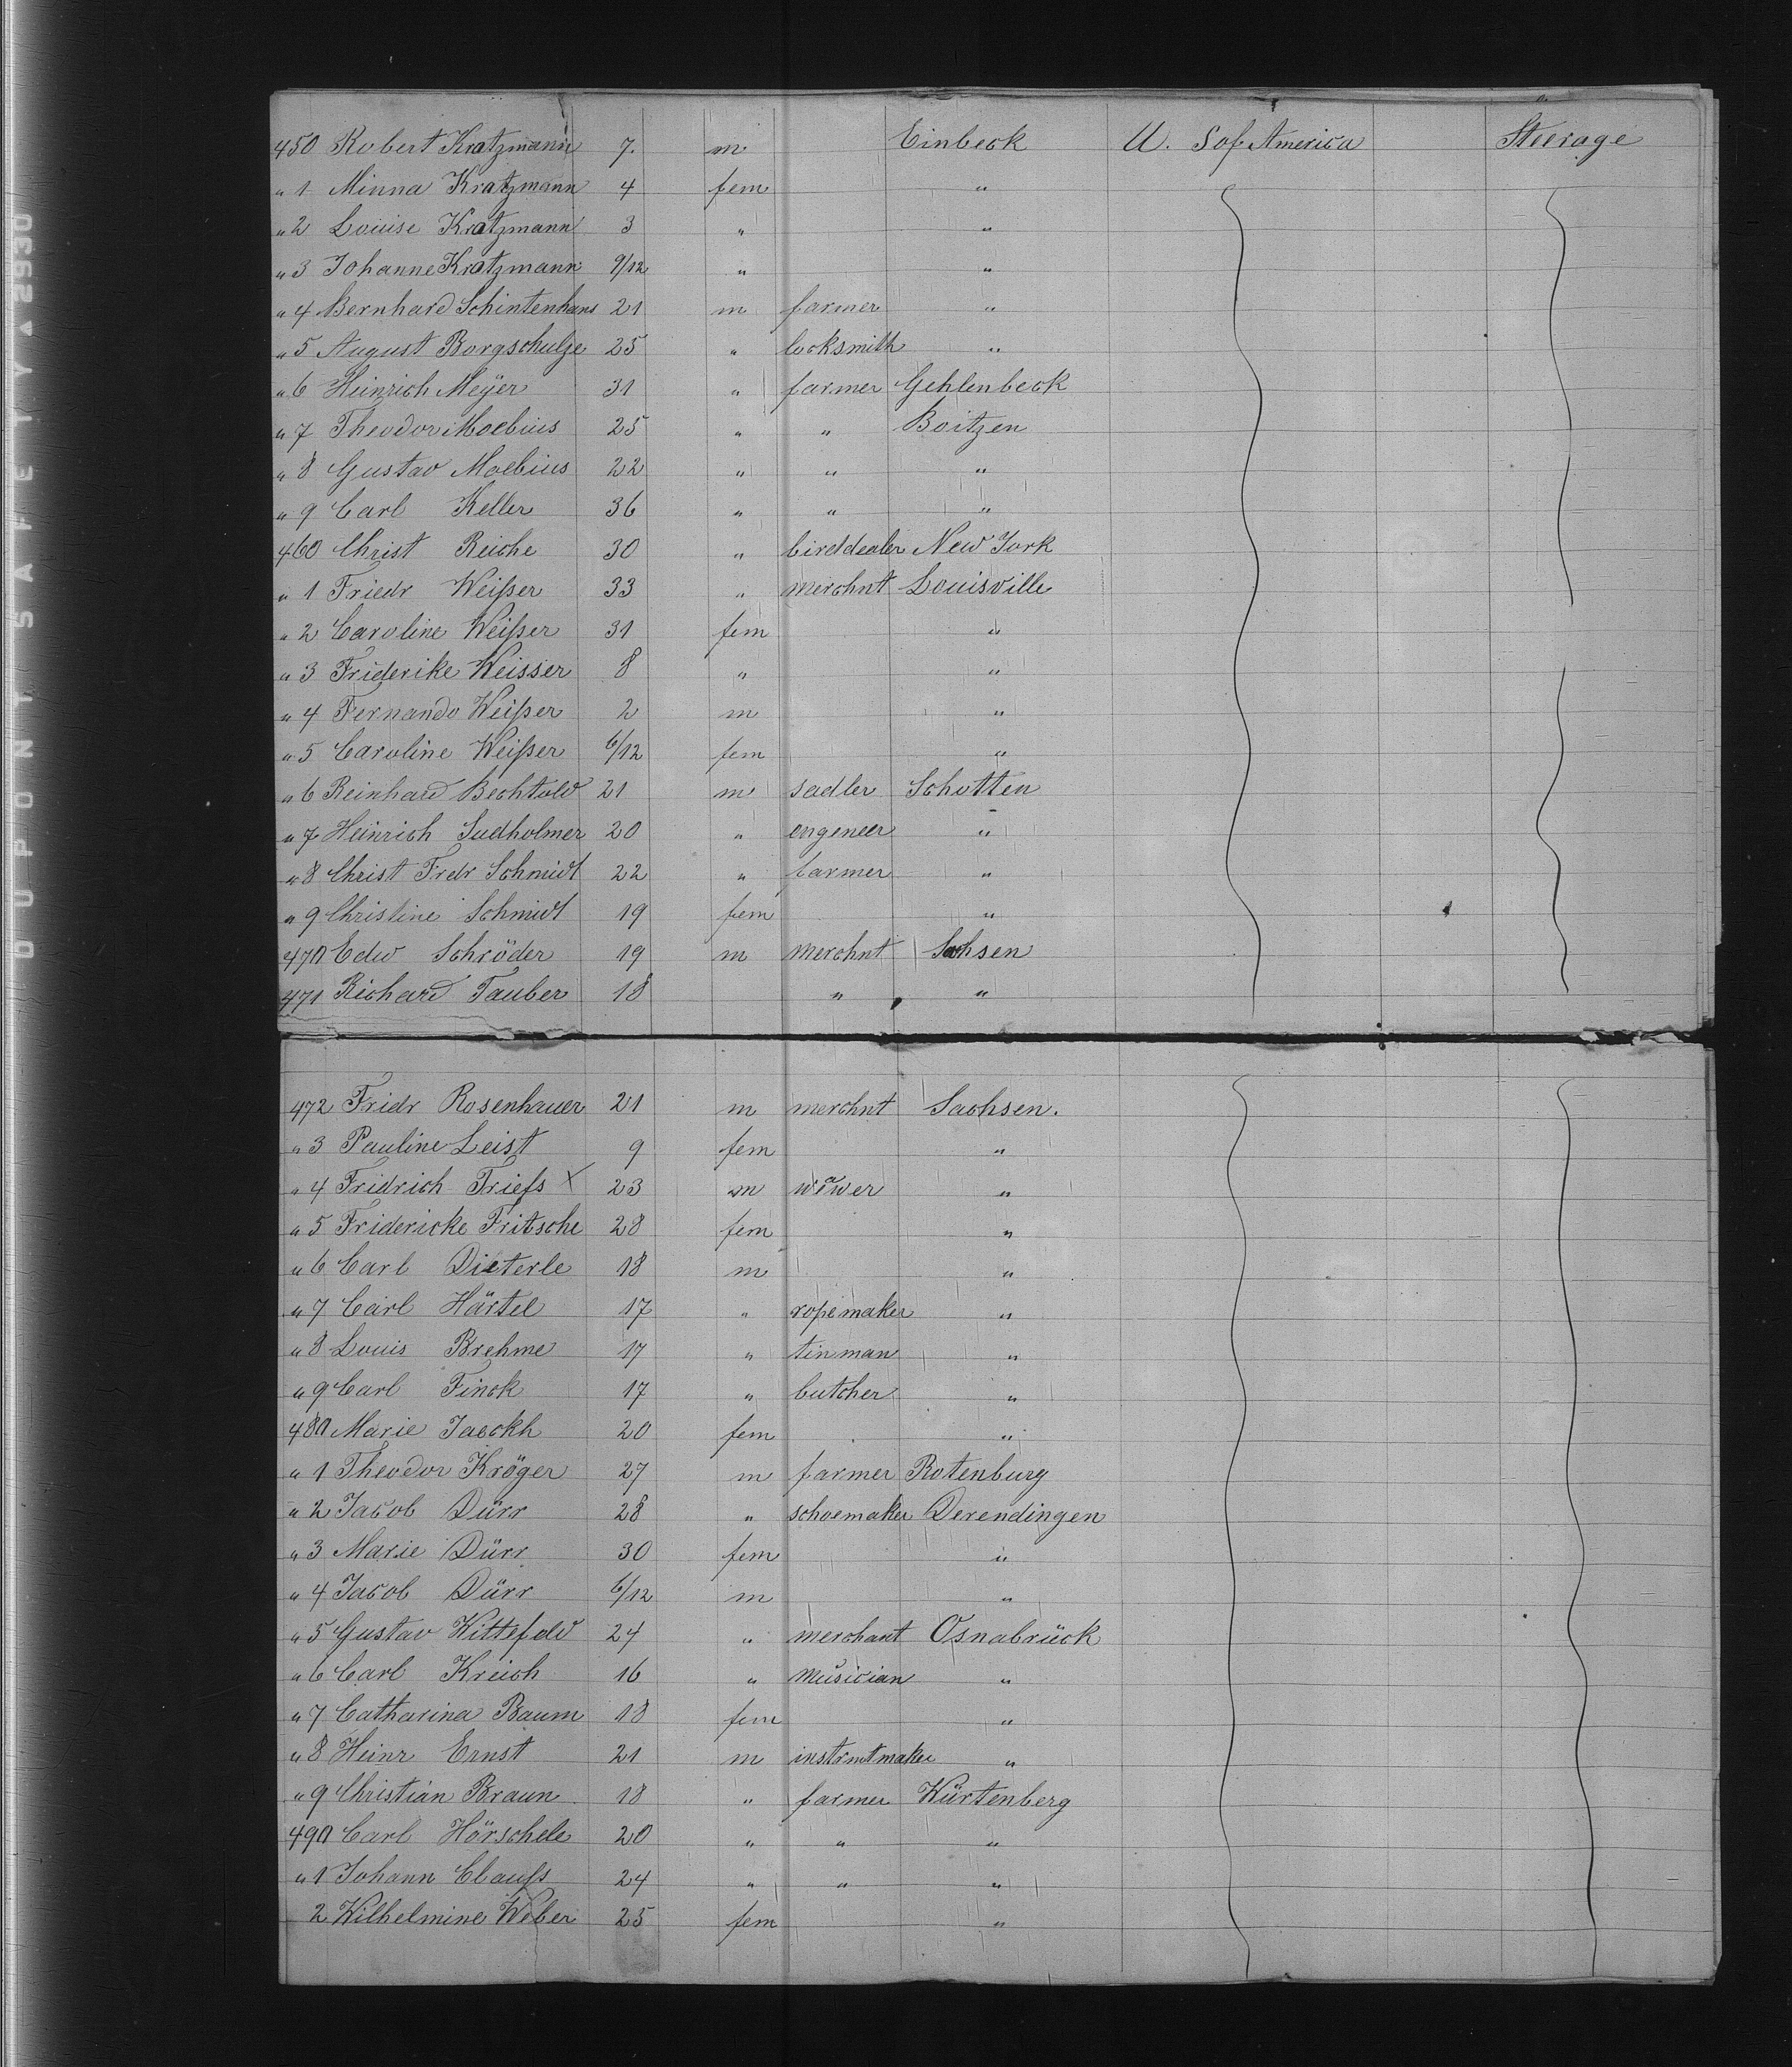 450 Robert Kratzmann 7. m Einbeck U. S of America Steerage
" 1 Minna Kratzmann 4 fem "
" 2 Louise Kratzmann 3 " "
" 3 Johanne Kratzmann 9/12 " "
" 4 Bernhard Schintenhans 21 m farmer "
" 5 August Borgschulze 25 " locksmith "
" 6 Heinrich Meÿer 31 " farmer Gehlenbeck
" 7 Theodor Moebius 25 " " Boitzen
" 8 Gustav Moebius 22 " " "
" 9 Carl Keller 36 " " "
460 Christ Reiche 30 " birddealer New York
" 1 Friedr Weißer 33 " merchnt Louisville
" 2 Caroline Weißer 31 fem "
" 3 Friderike Weisser 8 " "
" 4 Fernando Weißer 2 m "
" 5 Caroline Weißer 6/12 fem "
" 6 Reinhard Bechtold 21 m sadler Schotten
" 7 Heinrich Sudholmer 20 " engeneer "
" 8 Christ Fredr Schmidt 22 " farmer "
" 9 Christine Schmidt 19 fem "
470 Edw Schröder 19 m merchnt Sachsen
471 Richard Tauber 18 " "
472 Fridr Rosenhauer 21 m merchnt Sachsen.
" 3 Pauline Leist 9 fem "
" 4 Fridrich Triefs X 23 m "
" 5 Fridericke Fritsche 28 fem "
" 6 Carl Dieterle 18 m "
" 7 Carl Härtel 17 " ropemaker "
" 8 Louis Brehme 17 " tinman "
" 9 Carl Finck 17 " butcher "
480 Marie Jaeckh 20 fem "
" 1 Theodor Kröger 27 m farmer Rotenburg
" 2 Jacob Dürr 28 " schoemaker Derendingen
" 3 Marie Dürr 30 fem "
" 4 Jacob Dürr 6/12 m "
" 5 Gustav Wittefeld 24 " merchant Osnabrück
" 6 Carl Kreich 16 " musician "
" 7 Catharina Baum 18 fem "
" 8 Heinr Ernst 21 m instrmtmaker "
" 9 Christian Braun 18 " farmer Würtenberg
490 Carl Hörschele 20 " " "
" 1 Johann Claufs 24 " " "
2 Wilhelmine Weber 25 fem "
DUPONT SAFETY